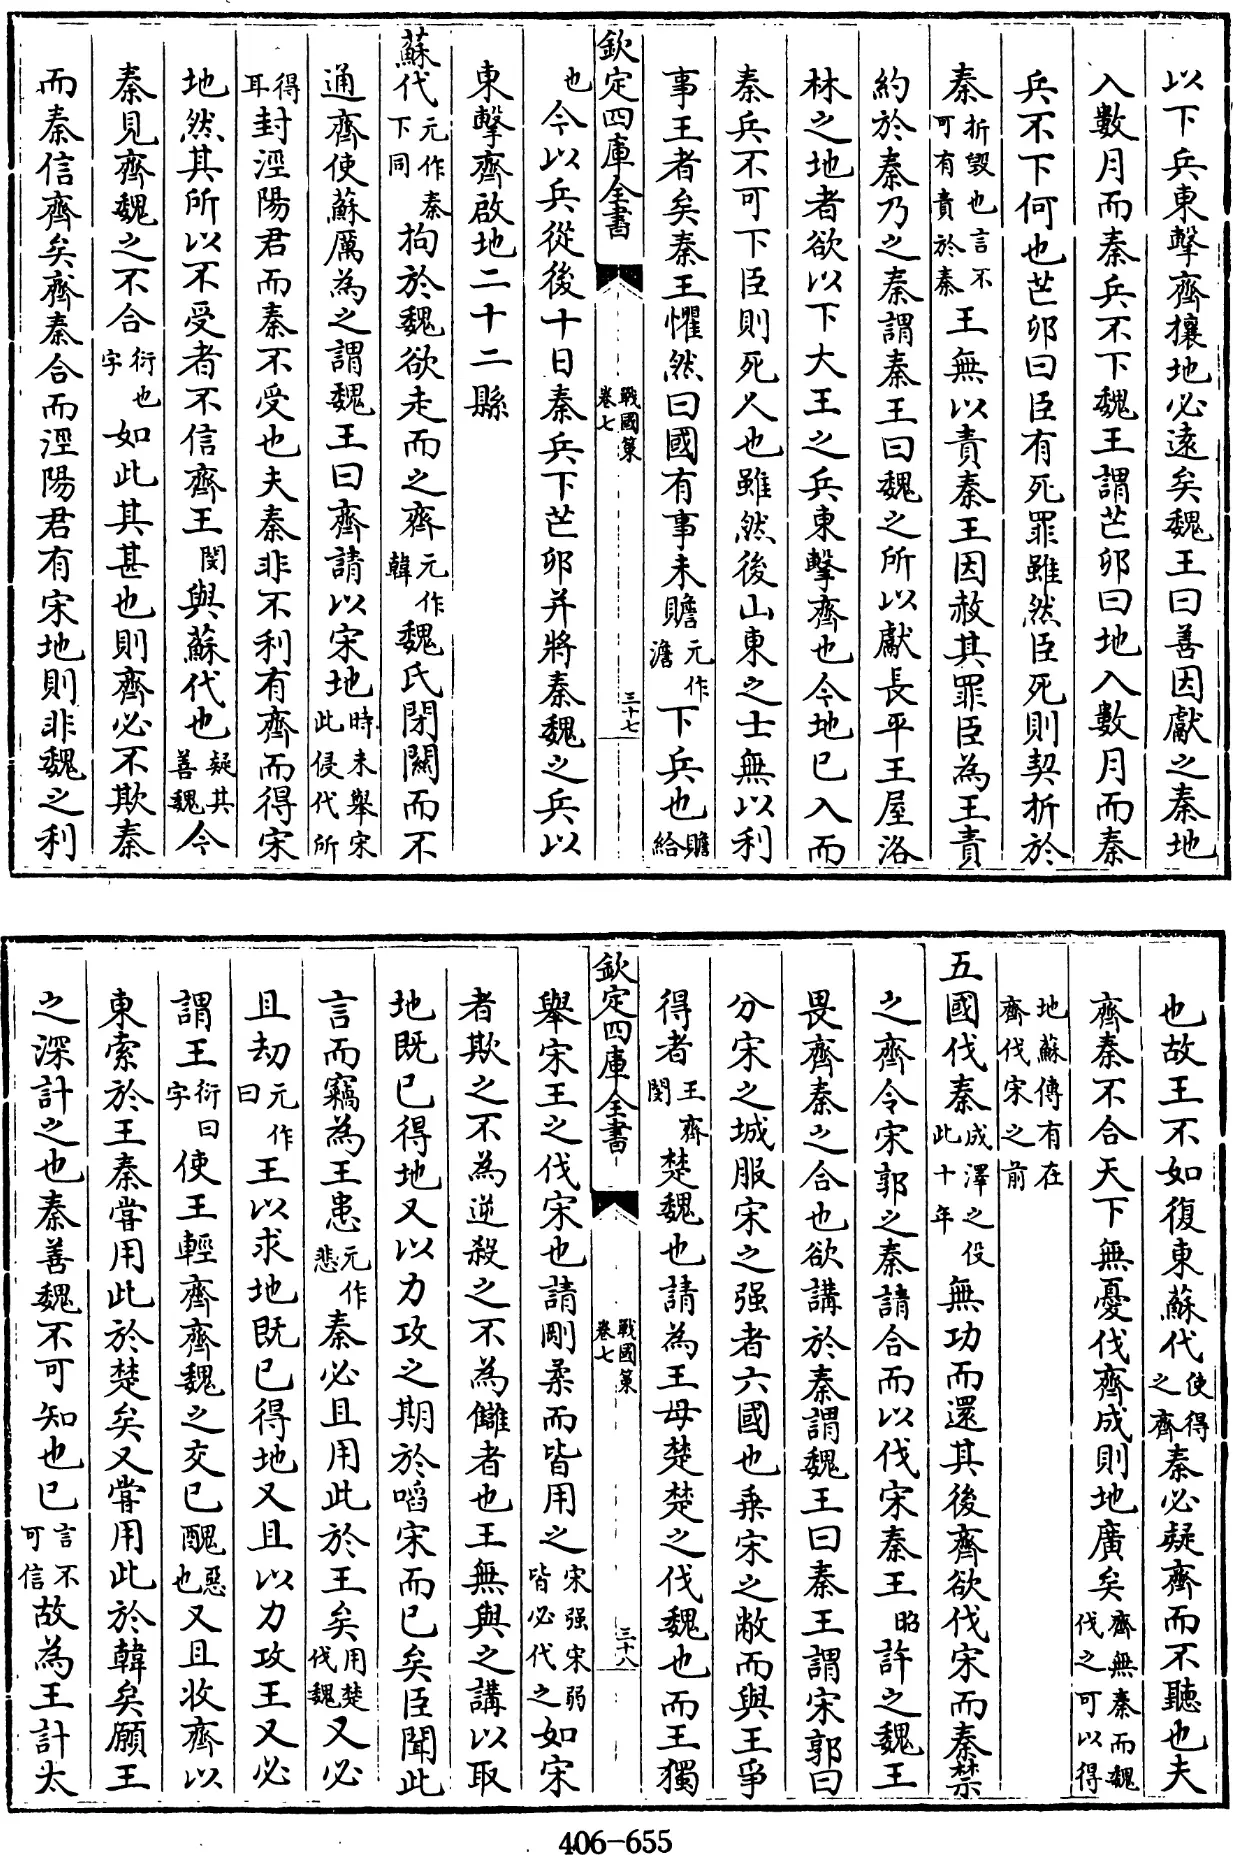 以下兵東擊齊攘地必遠矣魏王曰善因獻之秦地
入數月而秦兵不下魏王謂芒卯曰地入數月而秦
兵不下何也芒卯曰臣有死罪雖然臣死則契折於
秦折毀也言不可有責於秦王無以責秦王因赦其罪臣為王責
約於秦乃之秦謂秦王曰魏之所以獻長平王屋洛
林之地者欲以下大王之兵東擊齊也今地已入而
秦兵不可下臣則死人也雖然後山東之士無以利
事王者矣秦王懼然曰國有事未贍元作澹下兵也贍給
欽定四庫全書 戰國策卷七 三十七
也今以兵從後十日秦兵下芒卯并將秦魏之兵以
東擊齊啟地二十二縣
蘇代元作秦下同拘於魏欲走而之齊元作韓魏氏閉關而不
通齊使蘇厲為之謂魏王曰齊請以宋地時未舉宋此侵代所
得耳封涇陽君而秦不受也夫秦非不利有齊而得宋
地然其所以不受者不信齊王閔與蘇代也疑其善魏今
秦見齊魏之不合衍也字如此其甚也則齊必不欺秦
而秦信齊矣齊秦合而涇陽君有宋地則非魏之利
也故王不如復東蘇代使得之齊秦必疑齊而不聽也夫
齊秦不合天下無憂伐齊成則地廣矣齊無秦而魏伐之可以得
地蘇傳有在齊伐宋之前
五國伐秦成澤之役此十年無功而還其後齊欲伐宋而秦禁
之齊令宋郭之秦請合而以伐宋秦王昭許之魏王
畏齊秦之合也欲講於秦謂魏王曰秦王謂宋郭曰
分宋之城服宋之强者六國也乗宋之敝而與王爭
得者王齊閔楚魏也請為王毋楚楚之伐魏也而王獨
欽定四庫全書 戰國策卷七 三十八
舉宋王之伐宋也請剛柔而皆用之宋强宋弱皆必代之如宋
者欺之不為逆殺之不為讎者也王無與之講以取
地既已得地又以力攻之期於啗宋而已矣臣聞此
言而竊為王患元作悲秦必且用此於王矣用楚伐魏又必
且劫元作曰王以求地既已得地又且以力攻王又必
謂王衍曰字使王輕齊齊魏之交已醜惡也又且收齊以
東索於王秦嘗用此於楚矣又嘗用此於韓矣願王
之深計之也秦善魏不可知也已言不可信故為王計太
406-655